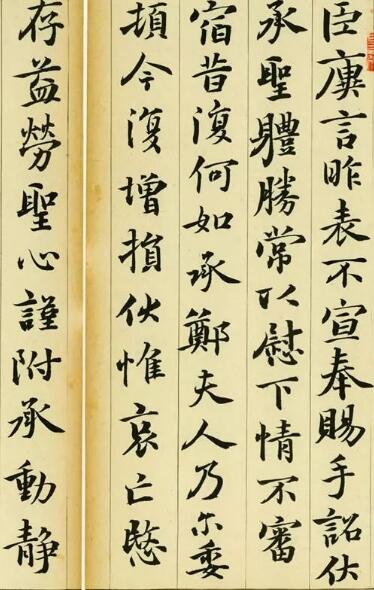 臣廙言昨表不宣奉賜手詔伏
承聖體勝常以慰下情不審
宿昔復何如承鄭夫人乃尔委
頓今復增損伏惟哀亡愍
存益勞聖心謹附承動静